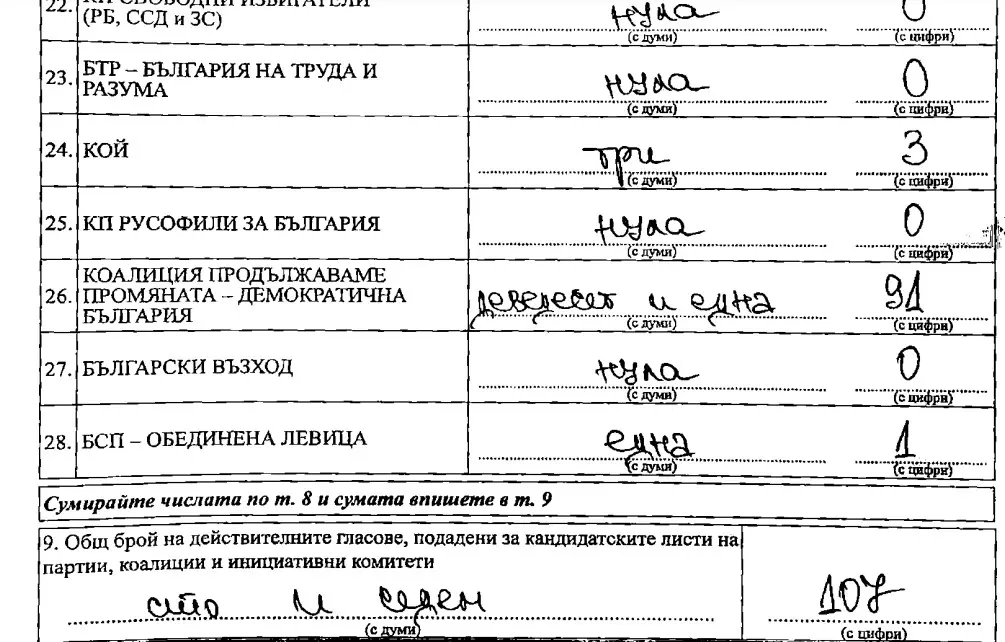 22. КП СВОБОДНИ ИЗБИРАТЕЛИ
(РБ, ССД и ЗС)
нула 0
(с думи) (с цифри)
23. БТР – БЪЛГАРИЯ НА ТРУДА И
РАЗУМА
нула 0
(с думи) (с цифри)
24. КОЙ
три 3
(с думи) (с цифри)
25. КП РУСОФИЛИ ЗА БЪЛГАРИЯ
нула 0
(с думи) (с цифри)
26. КОАЛИЦИЯ ПРОДЪЛЖАВАМЕ
ПРОМЯНАТА – ДЕМОКРАТИЧНА
БЪЛГАРИЯ
деведесет и една 91
(с думи) (с цифри)
27. БЪЛГАРСКИ ВЪЗХОД
нула 0
(с думи) (с цифри)
28. БСП – ОБЕДИНЕНА ЛЕВИЦА
една 1
(с думи) (с цифри)
Сумирайте числата по т. 8 и сумата впишете в т. 9
9. Общ брой на действителните гласове, подадени за кандидатските листи на
партии, коалиции и инициативни комитети
сто и седем 107
(с думи) (с цифри)